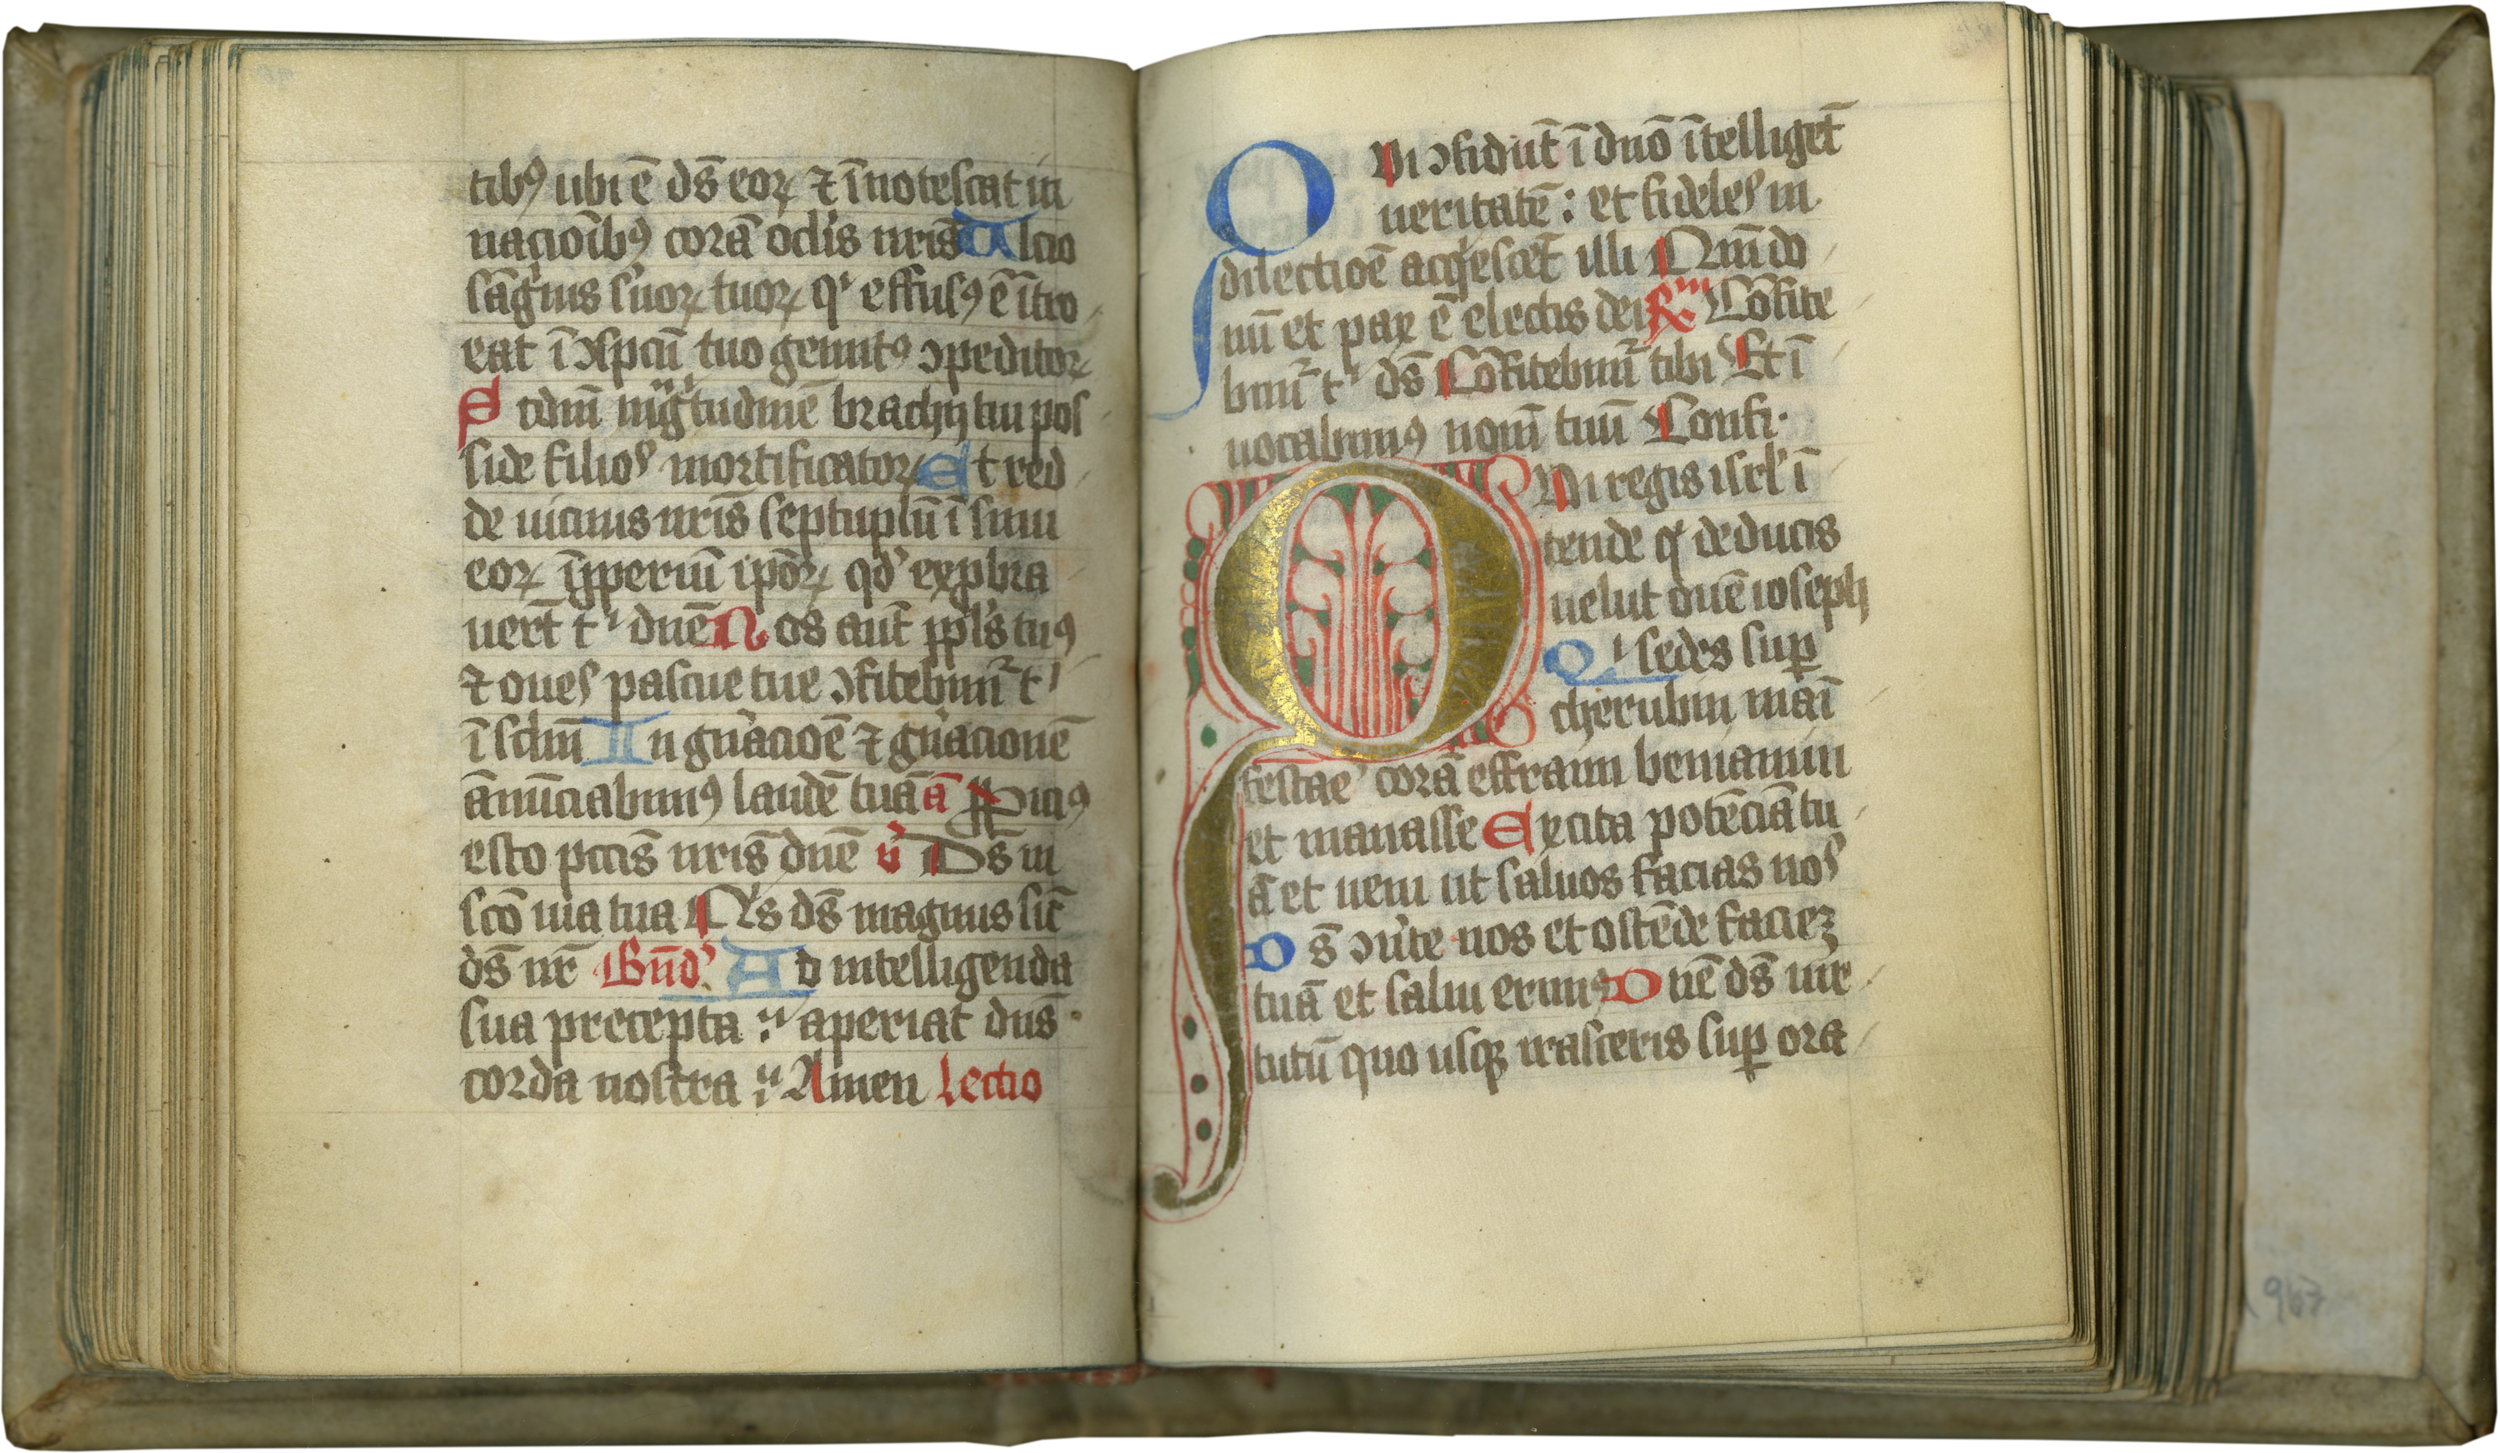 tibꝰ ubi ē ds̄ eoꝝ ⁊ īnotescat in
nacioībꝰ corā oclis nr̄is Ulcio
sāguis suoꝝ tuoꝝ qi effusꝰ ē ītro
eat ī ɔspcū tuo gemitꝰ ɔpeditoꝝ
Scdm̄ mgͥtudinē brachij tui pos
side filios mortificatoꝝ Et red
de uicinis nr̄is septuplū ī sinu
eoꝝ īpperiū ipōꝝ qd' expbra
uert̄ t' dn̄e Nos aut̄ ppl's tuꝰ
⁊ oues pascue tue ɔfitebimr̄ t'
ī sclm̄ In gn̄acioē ⁊ gn̄acionē
ānūciabimꝰ laudē tuā ā Ppiciꝰ
esto pccīs nr̄is dn̄e v̄ Ds̄ in
scō uia tua Qis ds̄ magnus sic̄
ds̄ nr̄ Bn̄d' Ad intelligenda
sua precepta aperiat dn̄s
corda nostra Amen Lectio
Qui ɔfidūt ī dn̄o ītelliget̄
ueritatē : et fideles in
dilectioē acqiescēt illi Qm̄ do
nū et pax ē electis dei ℟ Cōfite
bimr̄ t' ds̄ Cōfitebimr̄ tibi Et ī
uocabimꝰ nom̄ tuū Confi·
Qui regis isrl' ī
tende qi deducis
uelut ouē ioseph
Qi sedes sup
cherubin maī
festare corā effraim beniamin
et manasse Excita potēciā tu
ā et ueni ut saluos facias nos
Ds̄ ɔu'te nos et ostēde faciez
tuā et salui erimꝰ Dn̄e ds̄ uir
tutū quo usqꝫ irasceris sup ora
963